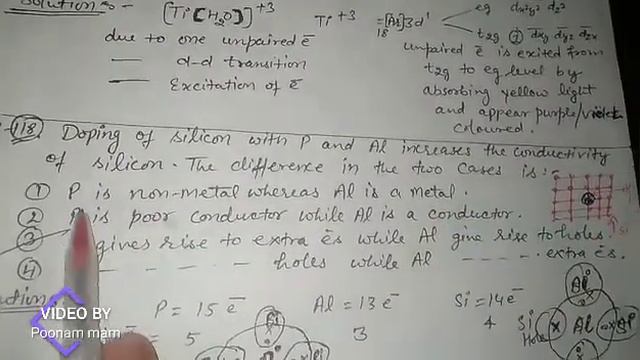 Solution :-
[Ti(H2O)]+3
Ti+3 =[Ar]3d1
18
eg dx²y² dz²
t2g ① dxy dyz dzx
due to one unpaired ē
— d-d transition
— Excitation of ē
unpaired ē is exited from
t2g to eg level by
absorbing yellow light
and appear purple/violet
coloured.
118 Doping of silicon with P and Al increases the conductivity
of silicon. The difference in the two cases is :-
① P is non-metal whereas Al is a metal.
② P is poor conductor while Al is a conductor.
③ gives rise to extra ēs while Al give rise to holes.
④ - - - - - holes while Al - - - - extra ēs.
P = 15 ē Al = 13 ē Si = 14 ē
= 5 3 4
Al
Si
Hole
Al
VIDEO BY
Poonam mam